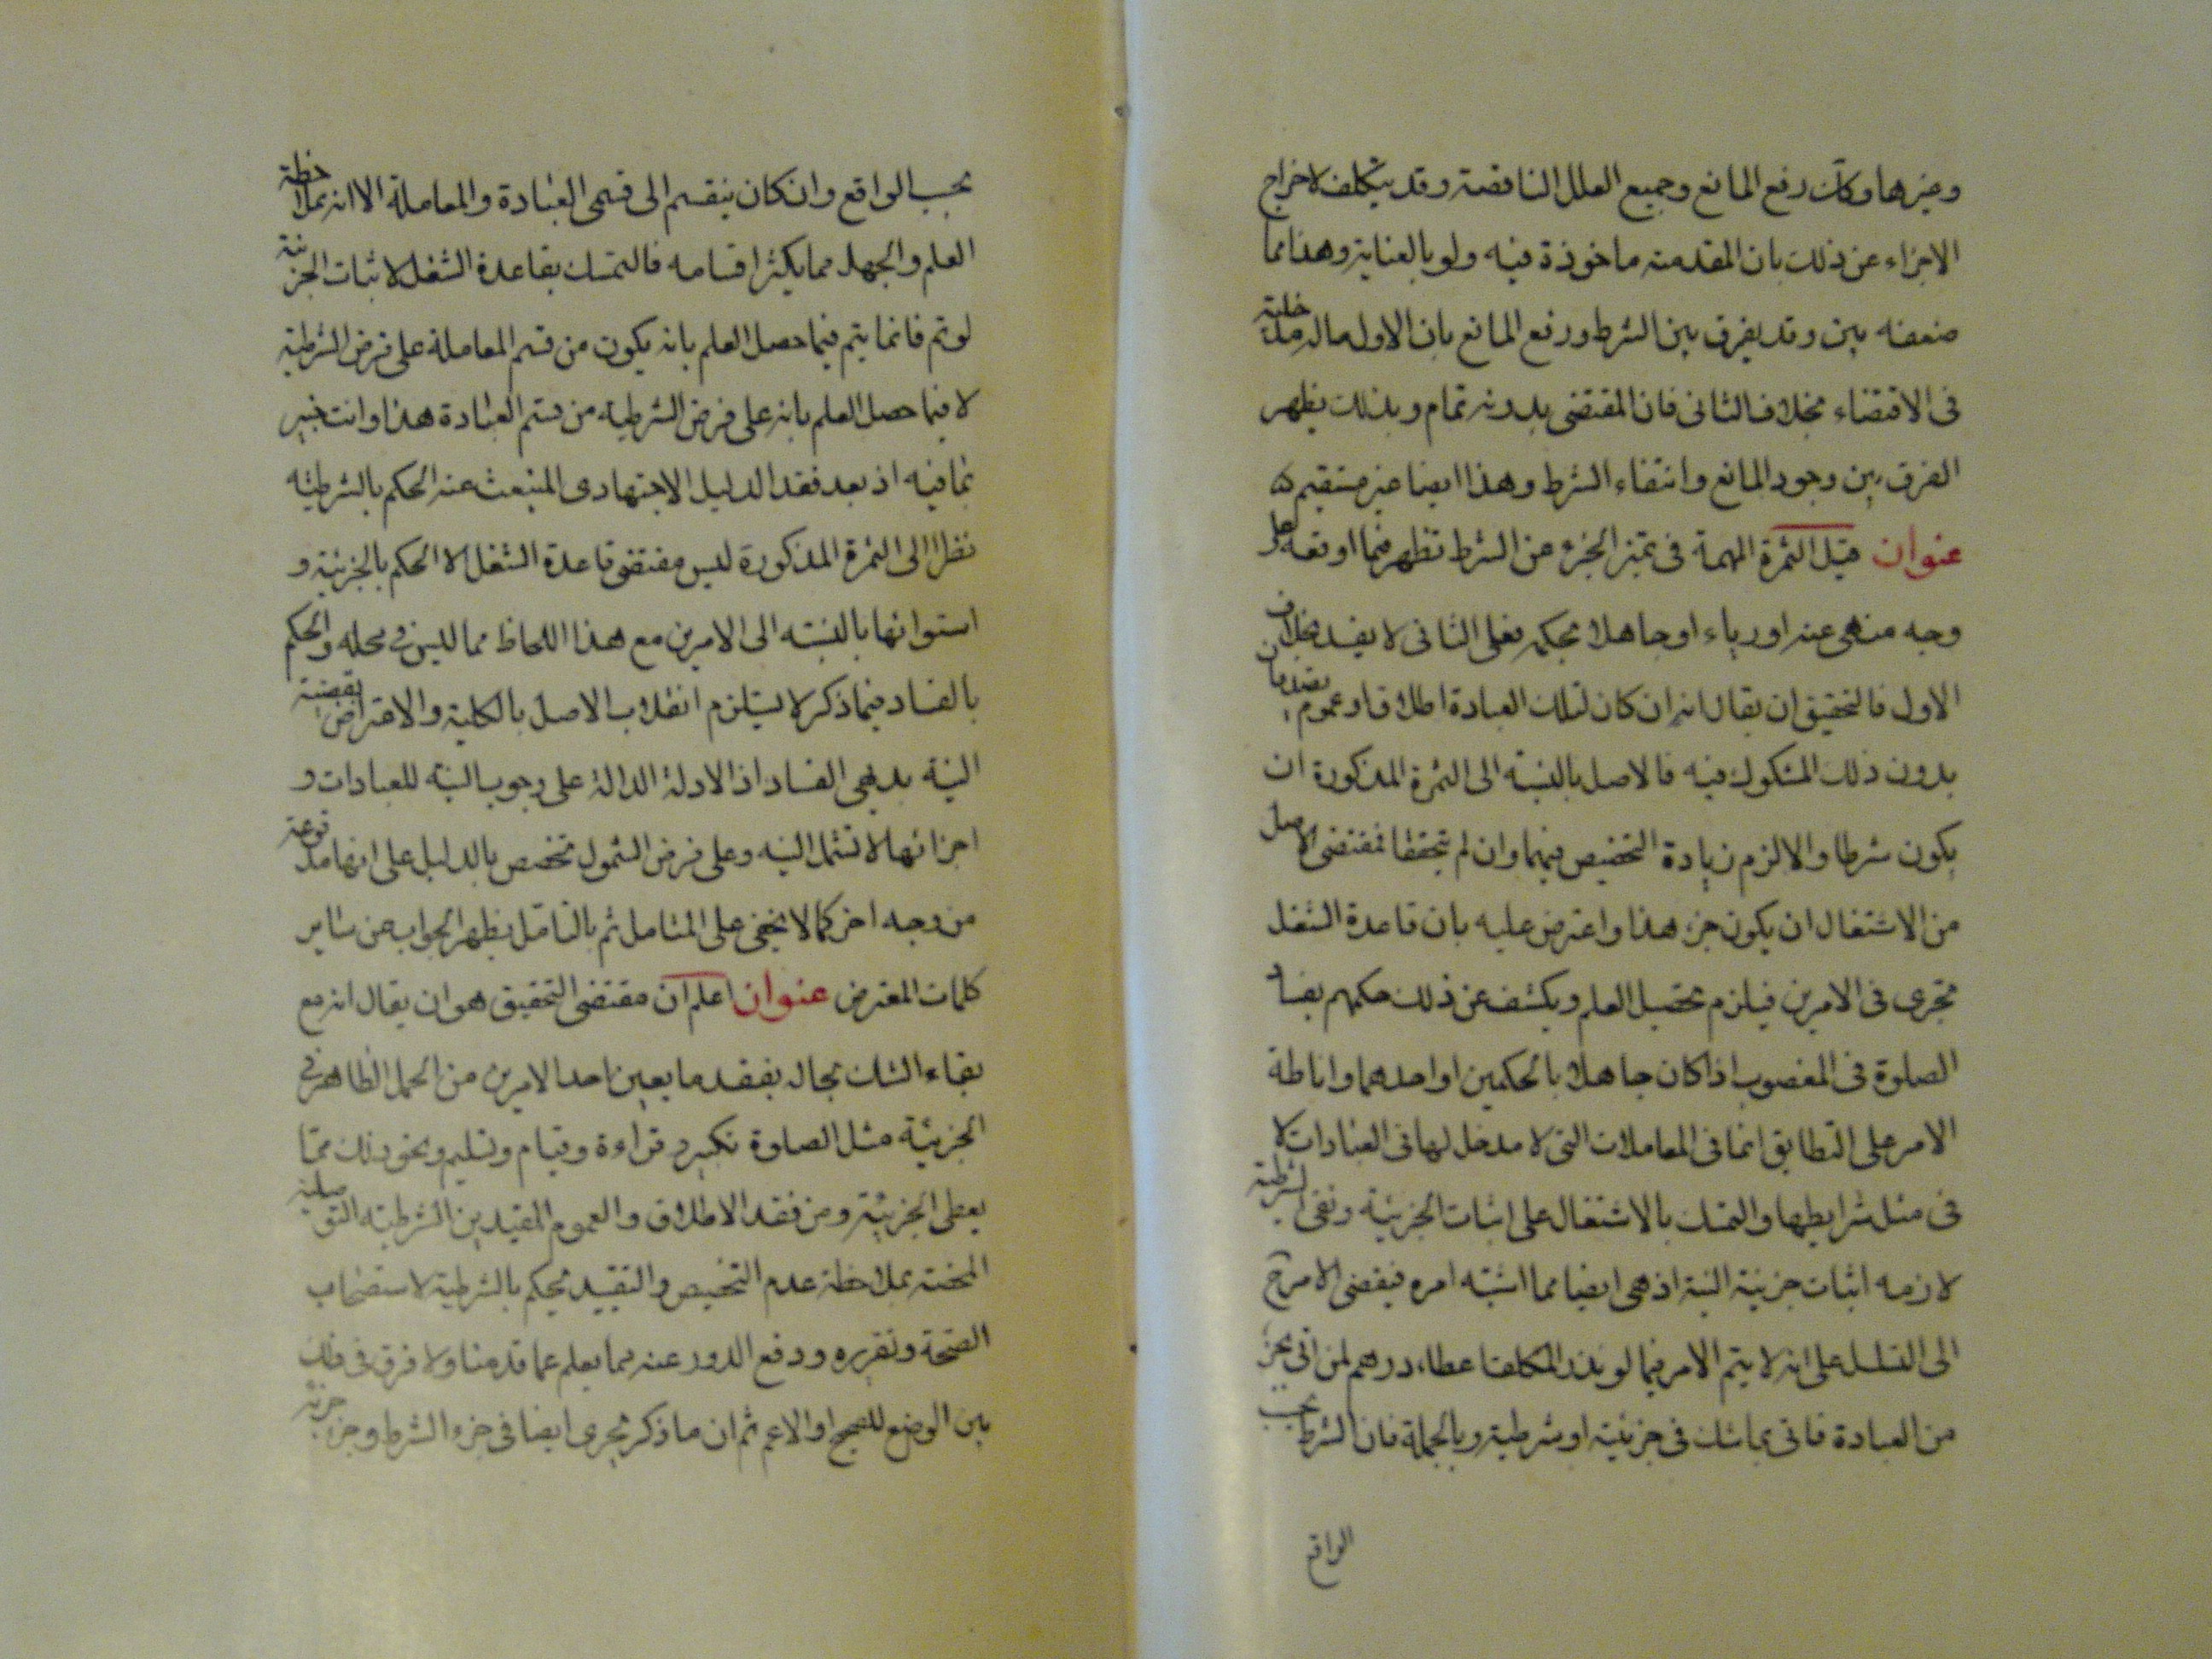 وغيرها وكك رفع المانع وجميع العلل الناقصة وقد يتكلف لاخراج
الاجزاء عن ذلك بان المقدمة ماخوذة فيه ولو بالعناية وهذا مما
ضعفه بين وقد يفرق بين الشرط ورفع المانع بان الاول ماله مدخلية
فى الاقتضاء بخلاف الثانى فان المقتضى بدونه تمام وبذلك يظهر
الفرق بين وجود المانع وانتفاء الشرط وهذا ايضا غير مستقيم
عنوان قيل الثمرة المهمة فى تميز الجزء عن الشرط تظهر فيما اوقعه على
وجه منهى عنه او رياء او جاهلا بحكمه فعلى الثانى لا يفسد بخلاف
الاول فالتحقيق ان يقال انه ان كان لتلك العبادة اطلاق او عموم يصدقان
بدون ذلك المشكوك فيه فالاصل بالنسبة الى الثمرة المذكورة ان
يكون شرطا والا لزم زيادة التخصيص فيهما وان لم يتحققا فمقتضى الاصل
من الاشتغال ان يكون جزء هذا واعترض عليه بان قاعدة الشغل
تجرى فى الامرين فيلزم تحصيل العلم ويكشف عن ذلك حكمهم بفساد
الصلوة فى المغصوب اذا كان جاهلا بالحكمين او احدهما واناطة
الامر على التطابق انما فى المعاملات التى لا مدخل لها فى العبادات لا
فى مثل شرايطها والتمسك بالاشتغال على اثبات الجزئية ونفى الشرطية
لازمه اثبات جزئية النية اذ هى ايضا مما اثبته امره فيقضى الامر ح
الى التسلسل على انه لا يتم الامر فيما لو نذر المكلف اعطاء درهم لمن اتى بجزء
من العبادة فاتى بما شك فى جزئيته او شرطيته وبالجملة فان الشرط بحسب
الواقع
بحسب الواقع وان كان ينقسم الى قسمى العبادة والمعاملة الا انه بملاحظة
العلم والجهل مما يكثر اقسامه فالتمسك بقاعدة الشغل لاثبات الجزئية
لو تم فانما يتم فيما حصل العلم بانه يكون من قسم المعاملة على فرض الشرطية
لا فيما حصل العلم بانه على فرض الشرطية من قسم العبادة هذا وانت خبير
بما فيه اذ بعد فقد الدليل الاجتهادى المنبعث عنه الحكم بالشرطية
نظرا الى الثمرة المذكورة ليس مقتضى قاعدة الشغل الا الحكم بالجزئية و
استوائها بالنسبة الى الامرين مع هذا اللحاظ مما ليس فى محله والحكم
بالفساد فيما ذكر لا يستلزم انقلاب الاصل بالكلية والاعتراض بقضية
النية بديهى الفساد اذ الادلة الدالة على وجوب النية للعبادات و
اجزائها لا تشمل النية وعلى فرض الشمول تخصص بالدليل على انها مدفوعة
من وجه اخر كما لا يخفى على المتامل ثم بالتامل يظهر الجواب عن ساير
كلمات المعترض عنوان اعلم ان مقتضى التحقيق هو ان يقال انه مع
بقاء الشك بحاله بفقد ما يعين احد الامرين من الحمل الظاهر فى
الجزئية مثل الصلوة تكبير وقراءة وقيام وتسليم ونحو ذلك مما
يعطى الجزئية ومن فقد الاطلاق والعموم المفيدين الشرطية التوصلية
المحضة بملاحظة عدم التخصيص والتقييد يحكم بالشرطية لاستصحاب
الصحة وتقريره ودفع الدور عنه مما يعلم عما قدمنا ولا فرق فى ذلك
بين الوضع للصحيح او الاعم ثم ان ما ذكر يجرى ايضا فى جزء الشرط وجزء جزئه